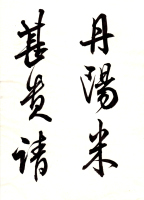 丹陽米
甚貴請